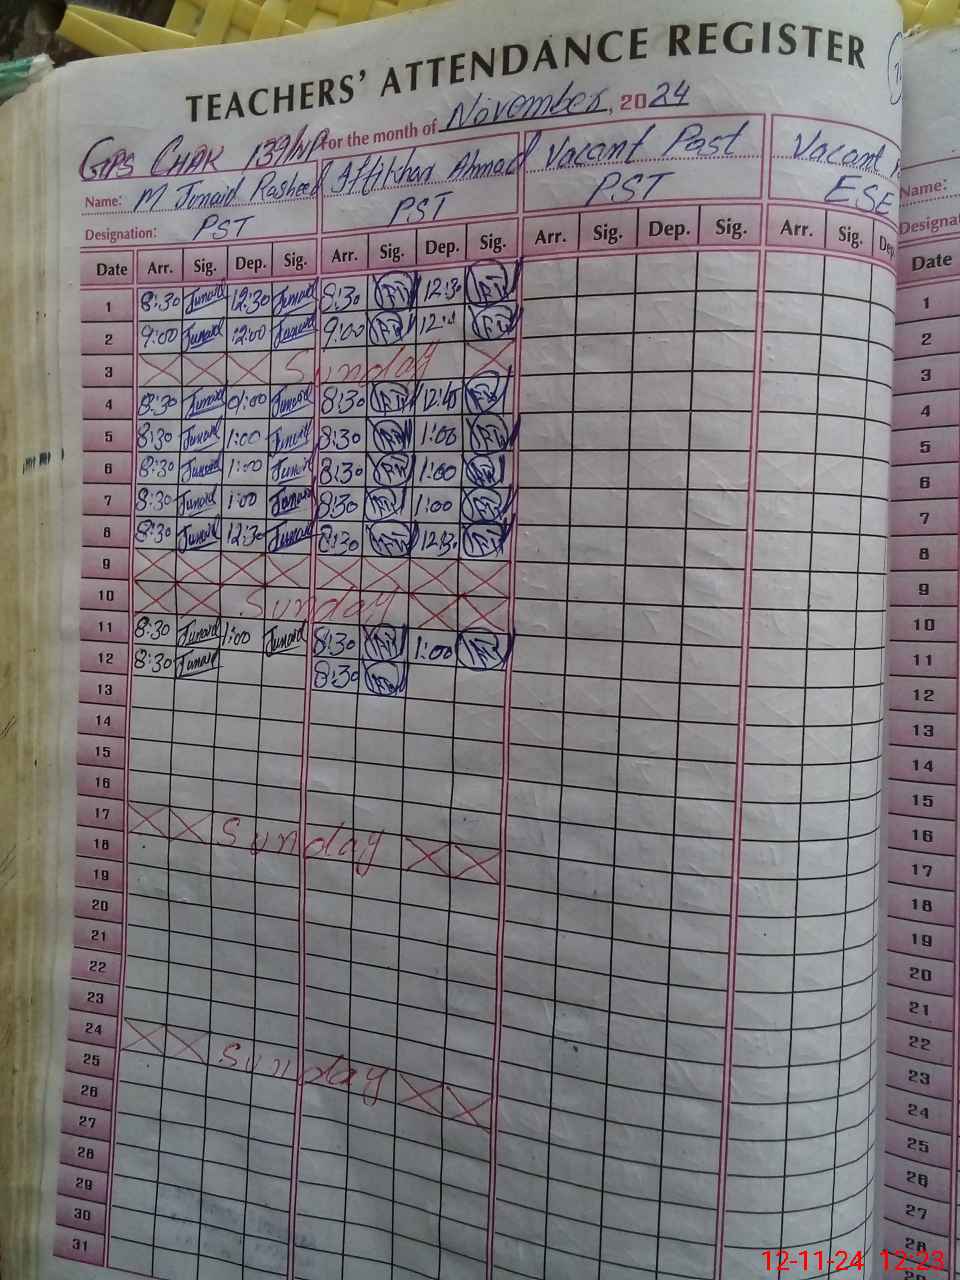 TEACHERS' ATTENDANCE REGISTER
For the month of November, 2024
GPS CHAK 139/NP
Name: M Junaid Rasheed Iftikhar Ahmad Vacant Post Vacant
Designation: PST PST PST ESE
Date Arr. Sig. Dep. Sig. Arr. Sig. Dep. Sig. Arr. Sig. Dep. Sig. Arr. Sig. Dep
1 8:30 Junaid 12:30 Junaid 8:30 12:30
2 9:00 Junaid 12:00 Junaid 9:00
3 Sunday
4 8:30 Junaid 01:00 Junaid 8:30 12:40
5 8:30 Junaid 1:00 Junaid 8:30 1:00
6 8:30 Junaid 1:00 Junaid 8:30 1:00
7 8:30 Junaid 1:00 Junaid 8:30 1:00
8 8:30 Junaid 12:30 Junaid 8:30 12:30
9
10 Sunday
11 8:30 Junaid 1:00 Junaid 8:30 1:00
12 8:30 Junaid 8:30
13
14
15
16
17 Sunday
18
19
20
21
22
23
24 Sunday
25
26
27
28
29
30
31
Name:
Designat
Date
1
2
3
4
5
6
7
8
9
10
11
12
13
14
15
16
17
18
19
20
21
22
23
24
25
26
27
28
12-11-24 12:23